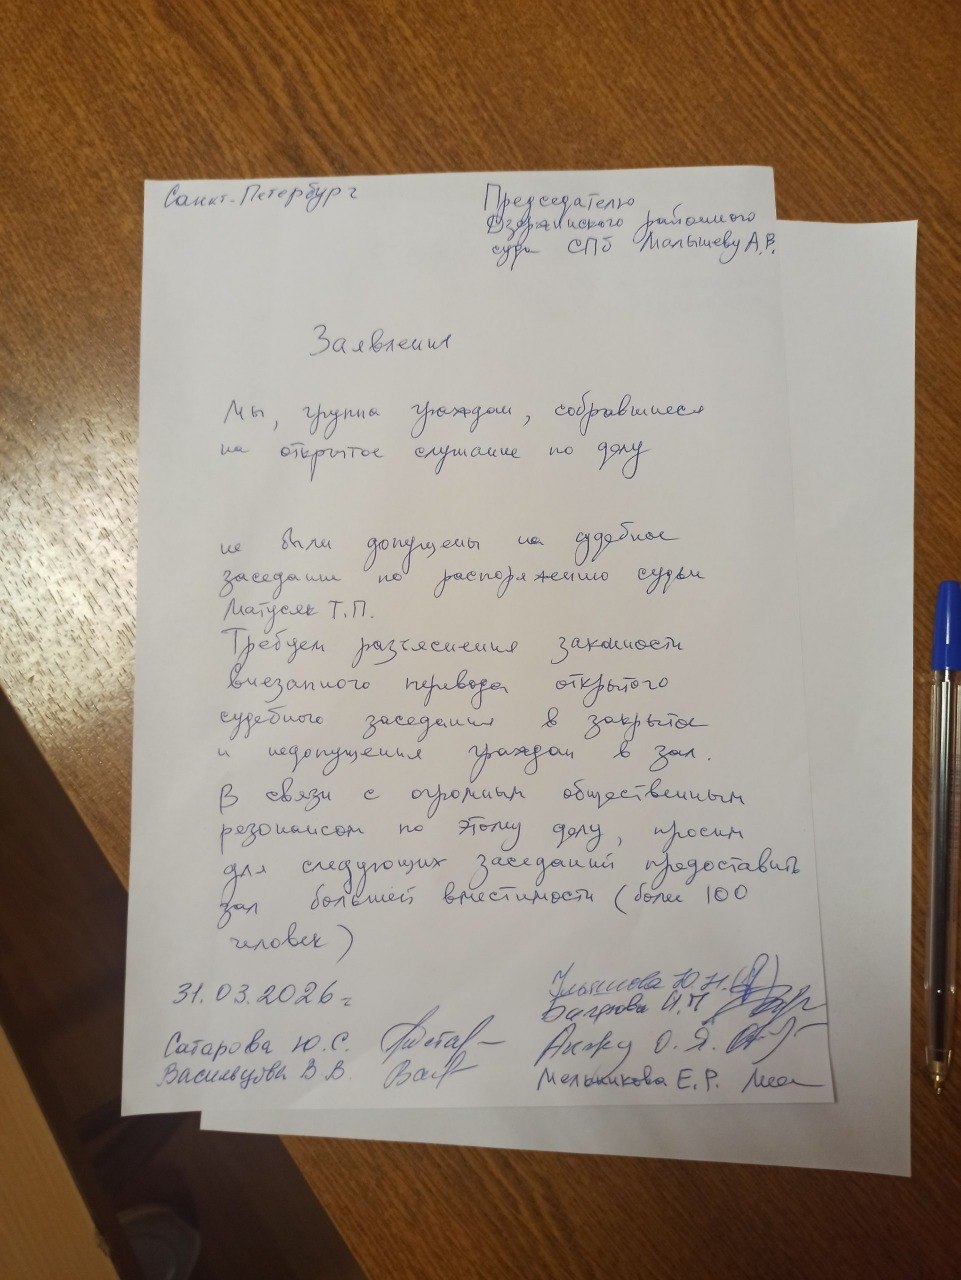 Санкт-Петербург
Председателю
Дзержинского районного
суда СПб Малышеву А.В.
Заявления
Мы, группа граждан, собравшиеся
на открытое слушание по делу
не были допущены на судебное
заседание по распоряжению судьи
Матусяк Т.П.
Требуем разъяснения законности
внезапного перевода открытого
судебного заседания в закрытое
и недопущения граждан в зал.
В связи с огромным общественным
резонансом по этому делу, просим
для следующих заседаний предоставить
зал большей вместимости (более 100
человек)
31.03.2026 г
Ю.Н.
И.П.
Сатарова Ю.С.
О.Я.
В.В.
Мельникова Е.Р.